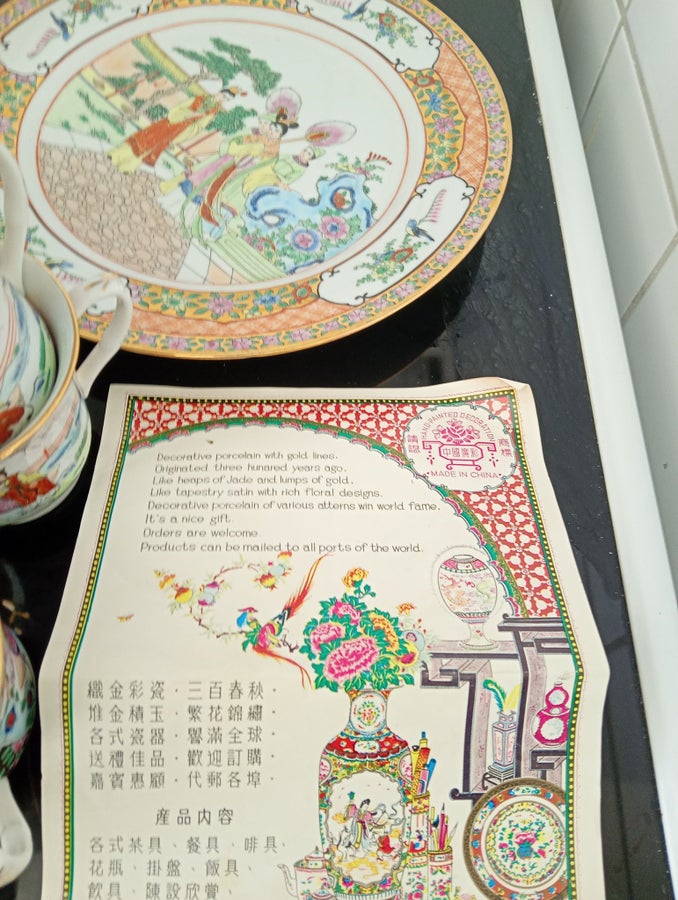 HAND PAINTED DECORATION
請認
商標
中國廣彩
MADE IN CHINA
Decorative porcelain with gold lines.
Originated three hunared years ago.
Like heaps of Jade and lumps of gold.
Like tapestry satin with rich floral designs.
Decorative porcelain of various atterns win world fame.
It's a nice gift.
Orders are welcome.
Products can be mailed to all ports of the world.
織金彩瓷·三百春秋·
堆金積玉·繁花錦繡·
各式瓷器·譽滿全球·
送禮佳品·歡迎訂購·
嘉賓惠顧·代郵各埠·
産品内容
各式茶具、餐具、啡具、
花瓶、掛盤、飯具、
飲具、陳設欣賞、